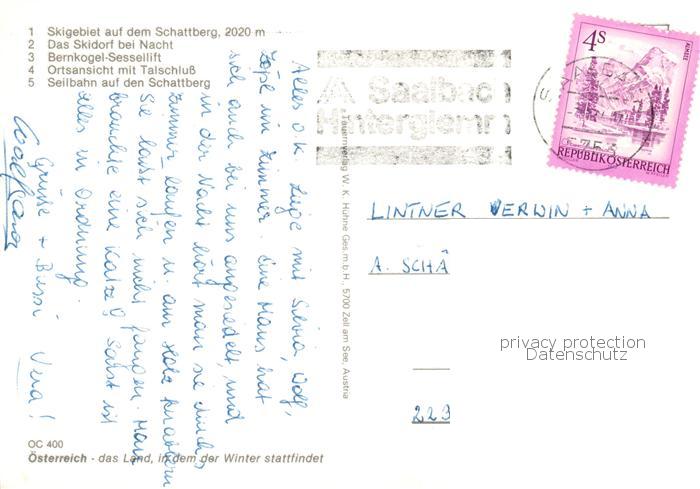 1 Skigebiet auf dem Schattberg, 2020 m
2 Das Skidorf bei Nacht
3 Bernkogel-Sessellift
4 Ortsansicht mit Talschluß
5 Seilbahn auf den Schattberg
Alles o.k. Liege mit Silvia, Wolf,
im Zimmer. Eine Maus hat
sich auch bei uns angesiedelt, und
in der Nacht hört man sie durchs
Zimmer laufen u. am Holz knabbern
Sie lässt sich nicht fangen. Man
brauchte eine Katze! Sonst ist
alles in Ordnung.
Grüsse + Bussi Vera!
Wolfgang
Saalbach
Hinterglemm
4S
ALMSEE
REPUBLIK ÖSTERREICH
5753
Tauernverlag W. K. Hühne Ges.m.b.H., 5700 Zell am See, Austria
LINTNER ERWIN + ANNA
A. SCHÄ
223
privacy protection
Datenschutz
OC 400
Österreich - das Land, in dem der Winter stattfindet